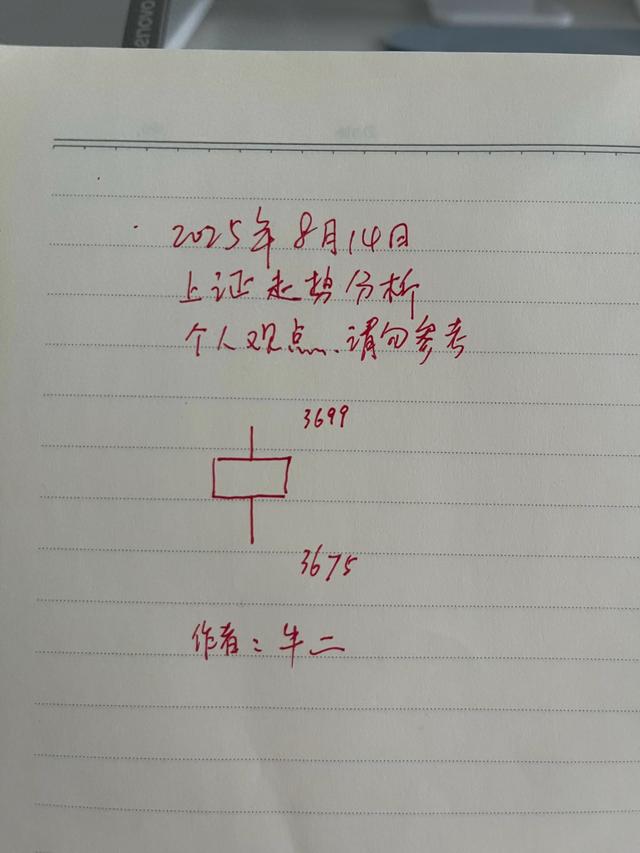 lenovo
2025年8月14日
上证走势分析
个人观点、请勿参考
3699
3675
作者：牛二